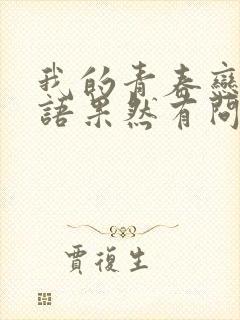 我的青春戀
語果然有問
賈復生